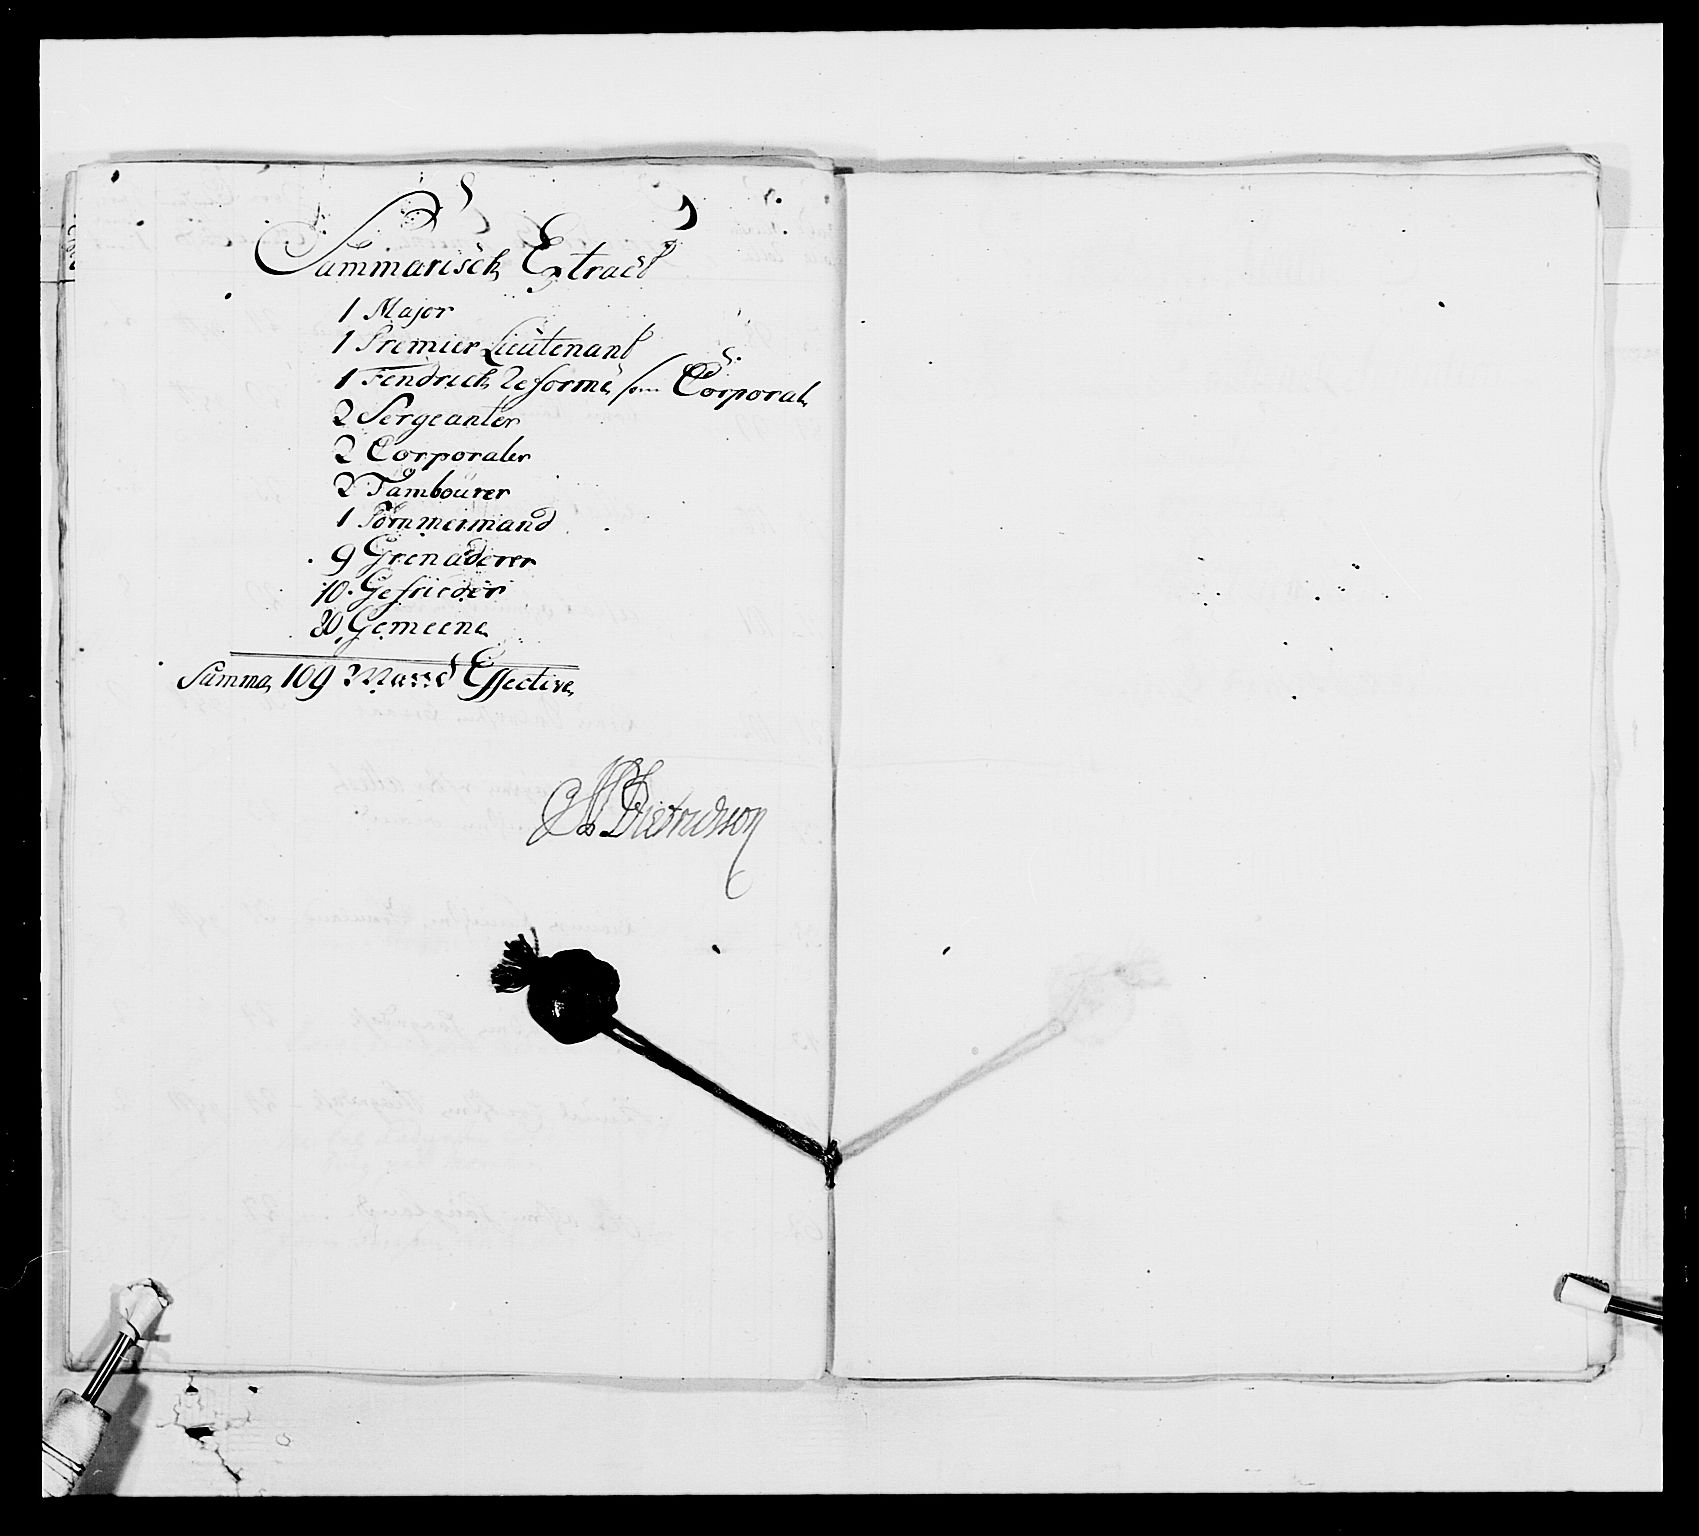 Summarisch Extract
1 Major
1 Premier Lieutenant
1 Fendrich Reformé som Corporal
2 Sergeanter
2 Corporaler
2 Tambourer
1 Tömmermand
9 Grenaderer
10 Gefrieder
80 Gemeene
Summa 109 Mand Effective
Dietrichson